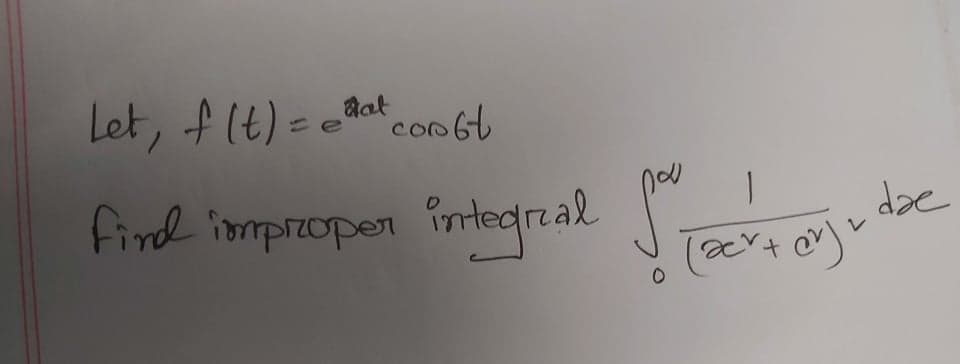 Let, f(t) = e^{at} cos6t
find improper integral ∫_0^∞ 1/(x²+c²)² dx